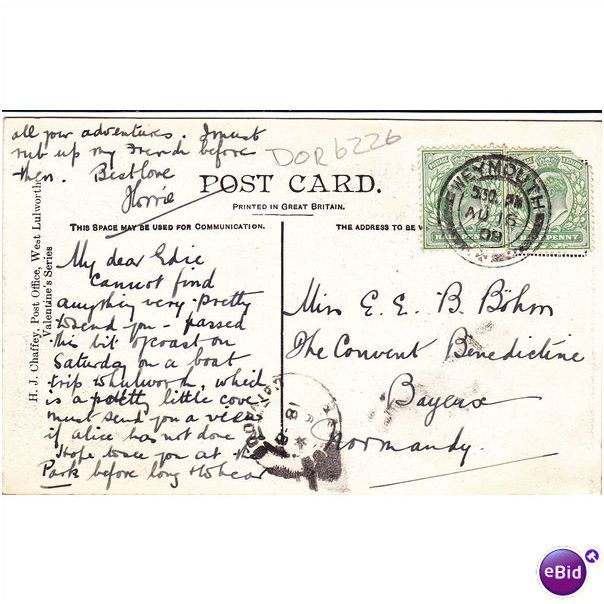 all your adventures. I must
rub up my French before
then. Best love
Florrie
DOR6226
POST CARD.
PRINTED IN GREAT BRITAIN.
THIS SPACE MAY BE USED FOR COMMUNICATION.
THE ADDRESS TO BE
H. J. Chaffey, Post Office, West Lulworth
Valentine's Series
WEYMOUTH
5.30 AM
AU 16
09
POSTAGE
HALF
PENNY
My dear Edie
Cannot find
anything very pretty
to send you - passed
this bit of coast on
Saturday on a boat
trip to Lulworth, which
is a pretty little cove
must send you a view
if Alice has not done
Hope to see you at the
Park before long & to hear
Miss E. E. B. Böhm
The Convent Benedictine
Bayeux
Normandy.
CALVADOS
18
eBid